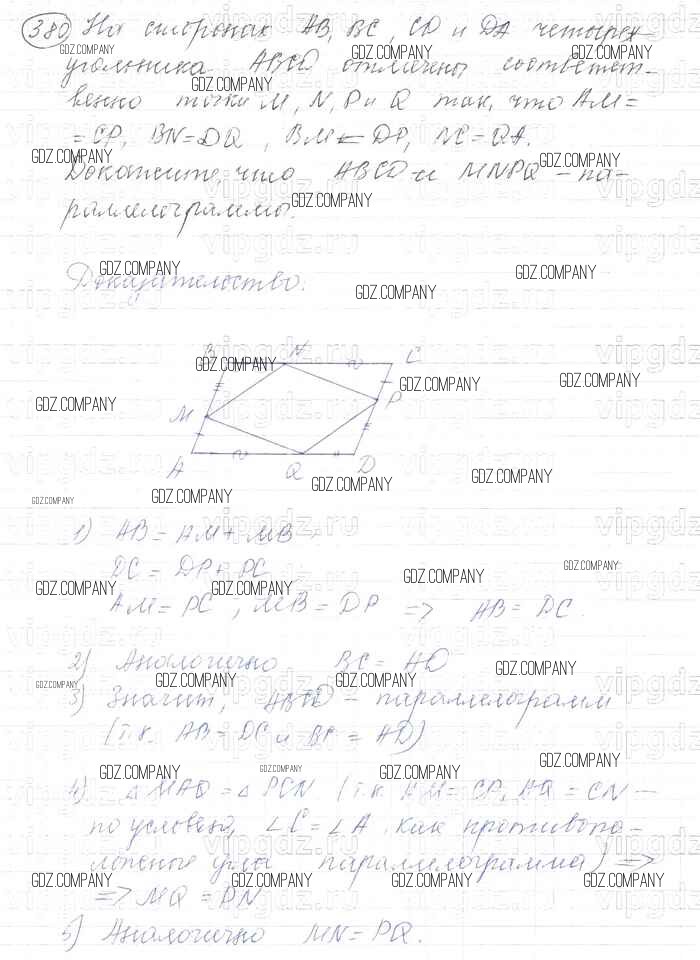 380) На сторонах AB, BC, CD и DA четырех-
угольника ABCD отмечены соответст-
венно точки M, N, P и Q так, что AM=
= CP, BN=DQ, BM = DP, NC=QA.
Докажите, что ABCD и MNPQ - па-
раллелограммы.
Доказательство:
B N C
M P
A Q D
1) AB = AM + MB
DC = DP + PC
AM = PC, MB = DP => AB = DC.
2) Аналогично BC = AD
3) Значит, ABCD - параллелограмм
(т.к. AB = DC и BC = AD)
4) △ MAQ = △ PCN (т.к. AM = CP, AQ = CN -
по условию, ∠C = ∠A как противопо-
ложные углы параллелограмма) =>
=> MQ = PN
5) Аналогично MN = PQ.
GDZ.COMPANY
vipgdz.ru